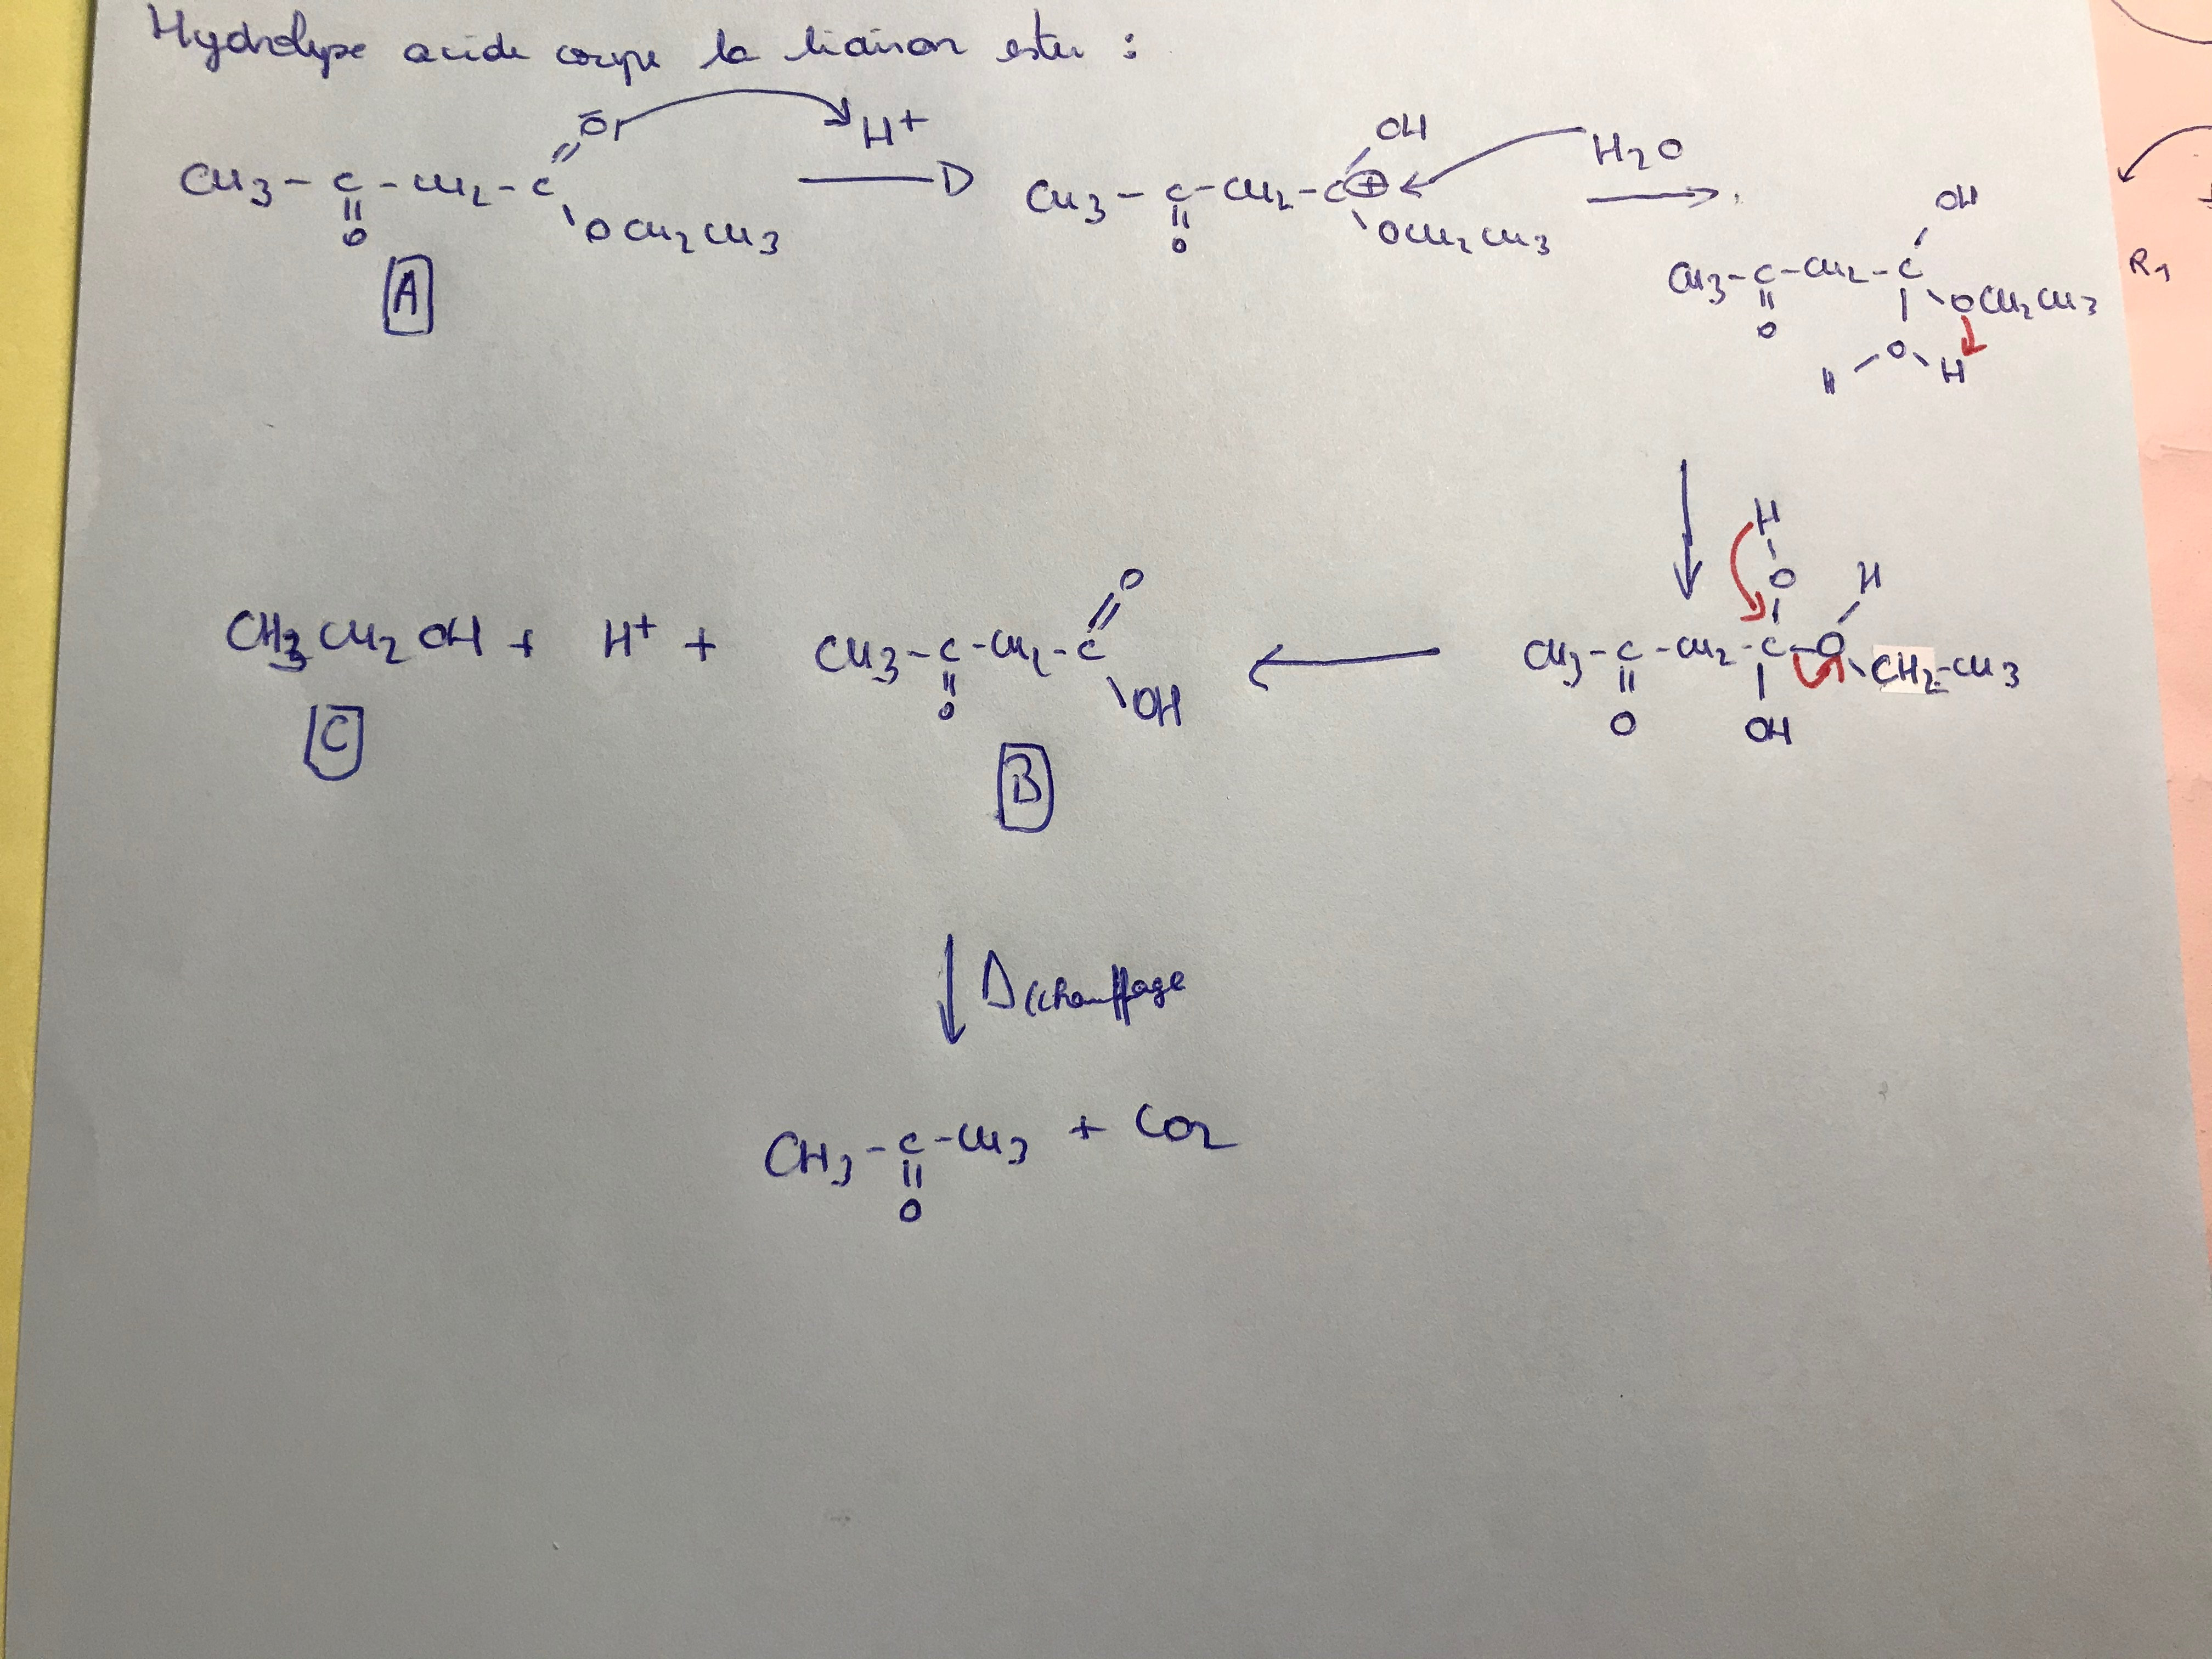 Hydrolyse acide coupe la liaison ester :
CH3 - C - CH2 - C
O
O
OCH2CH3
H+
A
CH3 - C - CH2 - C ⊕
O
OH
OCH2CH3
H2O
CH3 - C - CH2 - C
O
OH
OCH2CH3
H - O - H
R1
CH3 - C - CH2 - C - O - CH2 - CH3
O
OH
H
O
H
CH3CH2OH + H+ + CH3 - C - CH2 - C
O
O
OH
C
B
Δ (chauffage
CH3 - C - CH3 + CO2
O